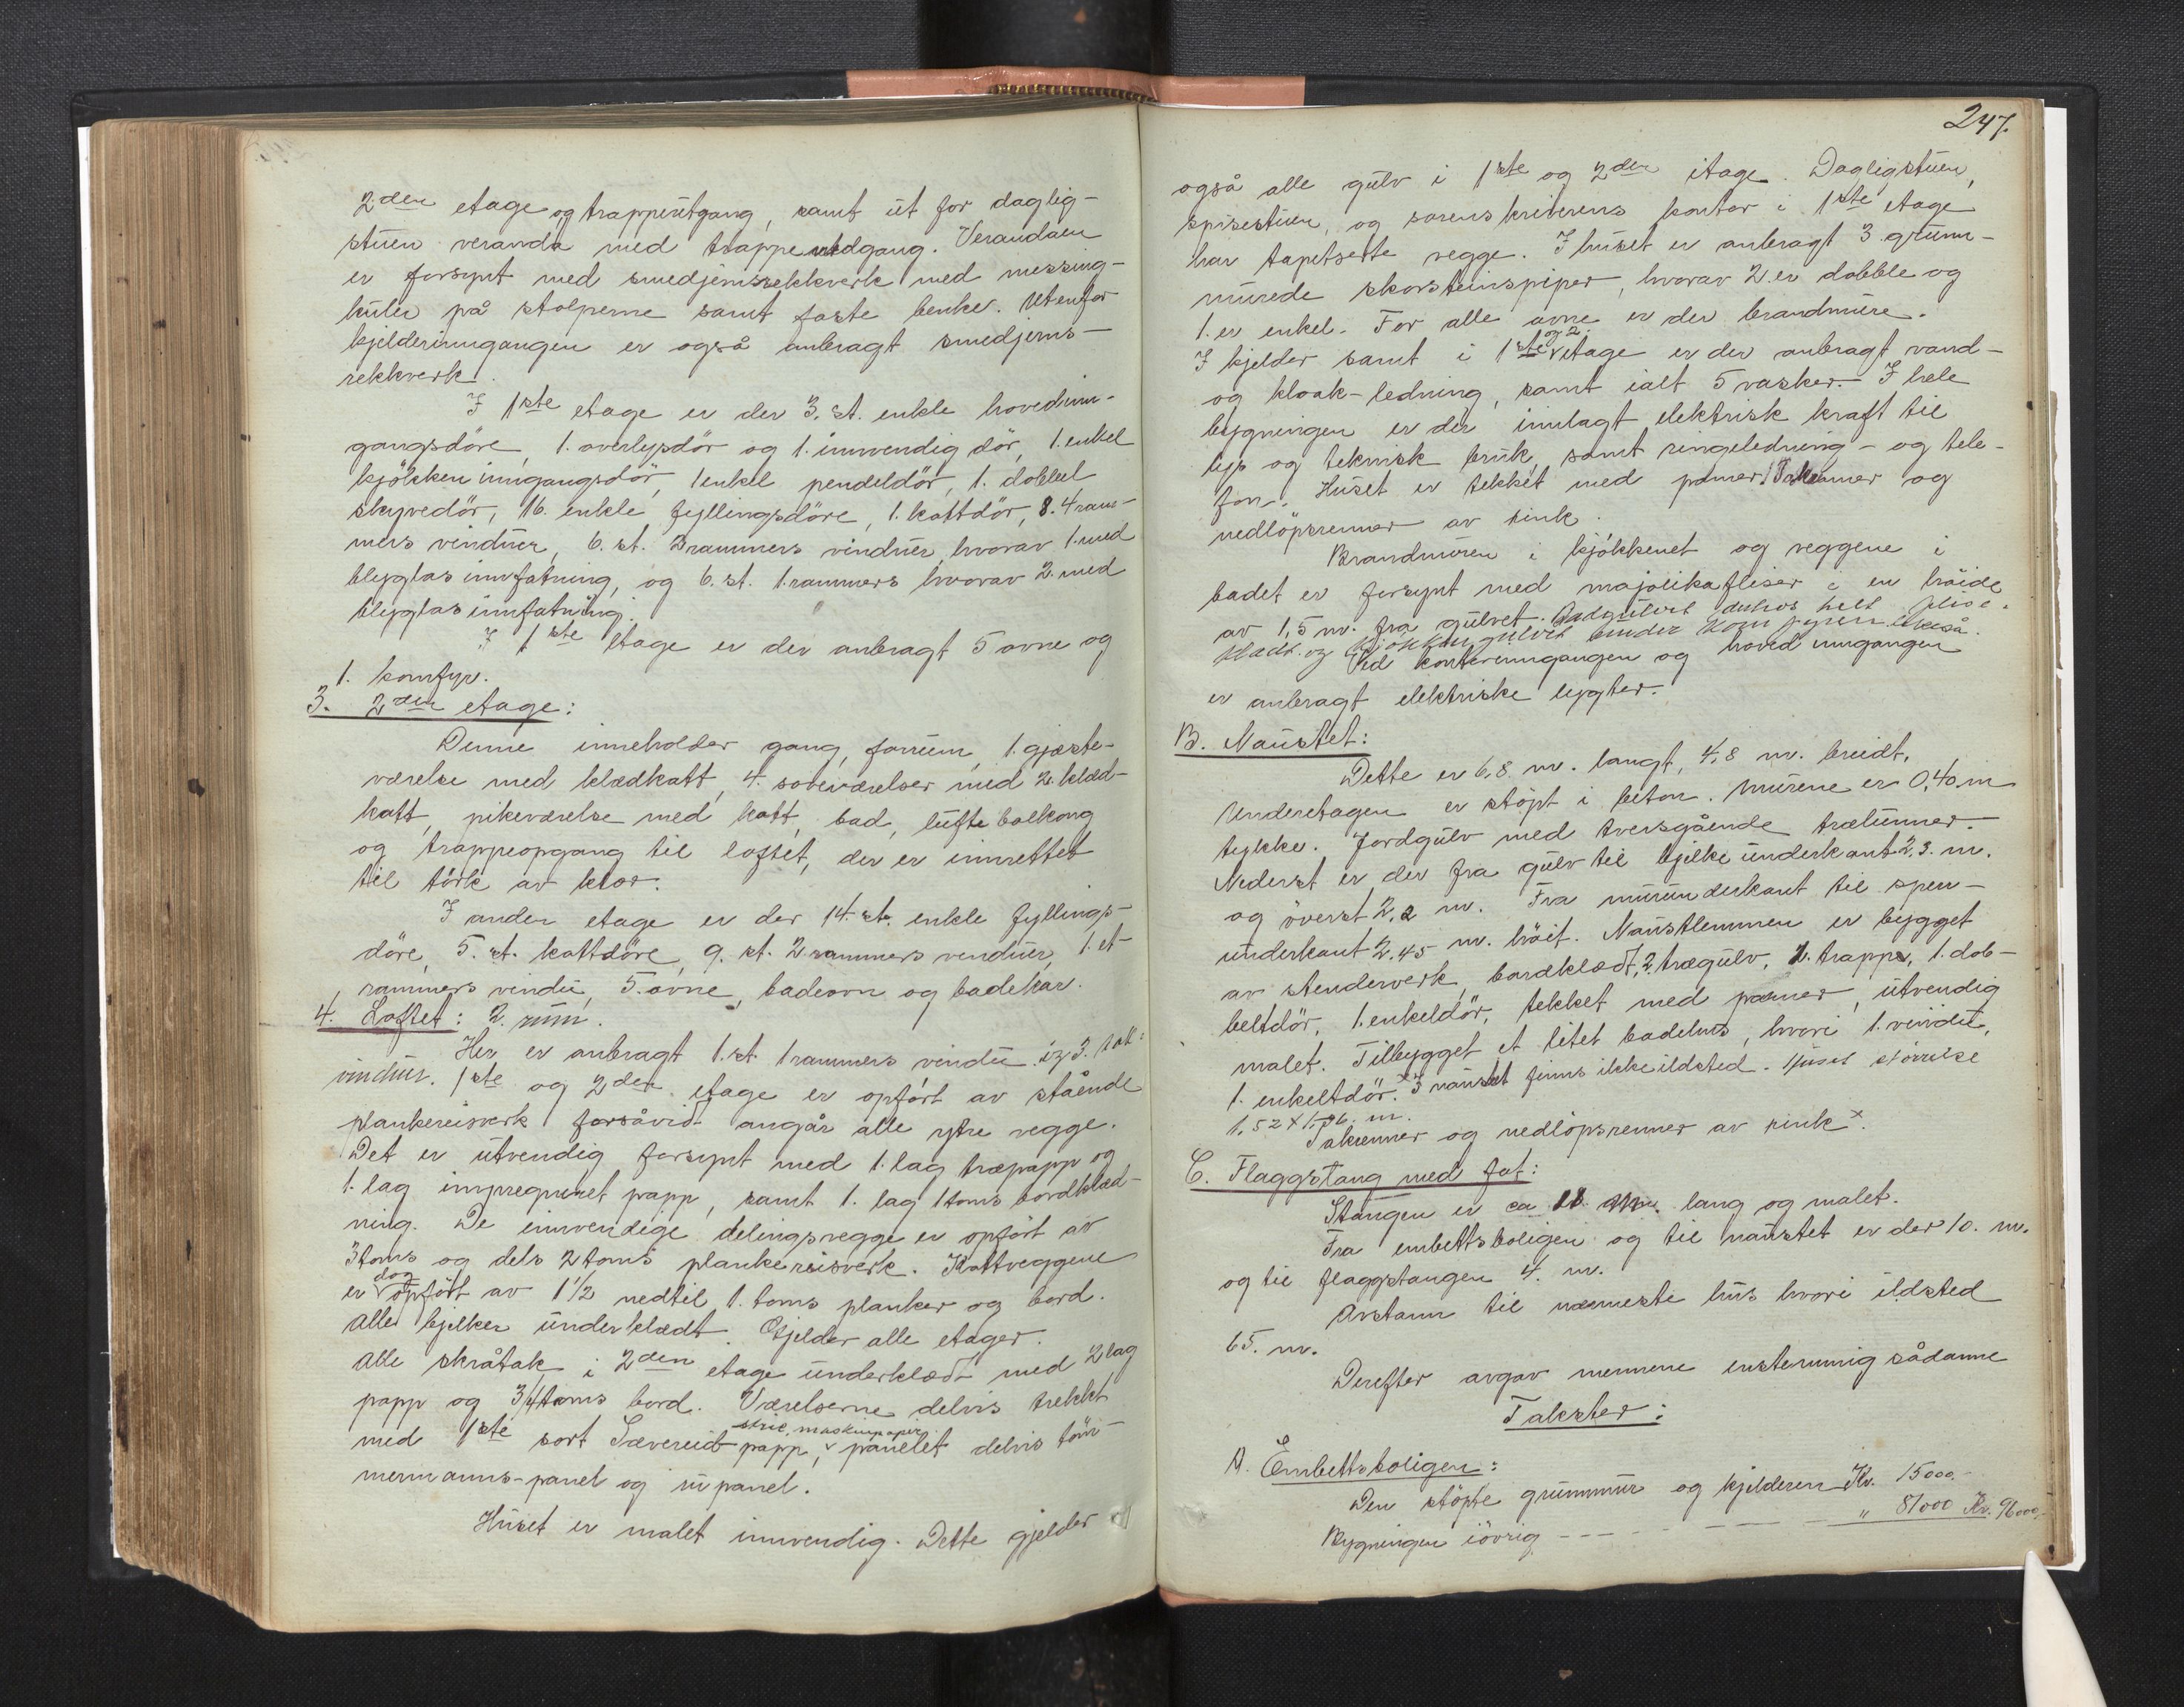 2den etage og trappeutgang, samt ut for daglig-
stuen veranda med trappe nedgang. Verandaen
er forsynt med smedjernsrekkverk med messing-
kuler på stolperne samt faste benker. Utenfor
kjelderinngangen er også anbragt smedjerns-
rekkverk.
I 1ste etage er der 3. st. enkle hovedinn-
gangsdöre, 1. overlysdör og 1. innvendig dör, 1. enkel
kjökken inngangsdör, 1 enkel pendeldör, 1. dobbel
skyvedör, 16. enkle fyllingsdöre, 1. kottdör, 8. 4 ram-
mers vinduer, 6. st. 2 rammers vinduer, hvorav 1. med
blyglas innfatning, og 6. st. 1. rammers hvorav 2. med
blyglas innfatning.
I 1ste etage er der anbragt 5 ovne og
1. komfyr.
3. 2den etage:
Denne inneholder gang, forrum, 1. gjæste-
værelse med klædkott, 4. soveværelser med 2. klæd-
kott, pikeværelse med kott, bad, lufte balkong
og trappeopgang til loftet, der er innrettet
til törk av klær.
I anden etage er der 14. st. enkle fyllings-
döre, 5. st. kottdöre, 9. st. 2 rammers vinduer, 1. et-
rammers vindu, 5. ovne, badeovn og badekar.
4. Loftet: 2. rum.
Her er anbragt 1. st. 1 rammers vindu. og 3. tak-
vinduer. 1ste og 2den etage er opfört av stående
plankereisverk forsåvidt angår alle ytre vegge.
Det er utvendig forsynt med 1. lag træpapp og
1. lag impregnert papp, samt 1. lag 1 toms bordklæd-
ning. De innvendige delingsvegge er opfört av
3 toms og dels 2 toms plankereisverk. Kottveggene
er dog opfört av 1 1/2 nedtil 1. toms planker og bord.
Alle bjelker underklædt. Gjelder alle etager.
Alle skråtak i 2den etage underklædt med 2 lag
papp og 3/4 toms bord. Værelserne delvis trekkt
med 1ste sort Sævereid papp, strie, maskinpapir, panelet delvis töm-
mermanns-panel og
Huset er malet innvendig. Dette gjelder
247.
også alle gulv i 1ste og 2den etage. Dagligstuen,
spisestuen, og sorenskriverens kontor i 1ste etage
har tapetserte vegge. I huset er anbragt 3. grunn-
murede skorsteinspiper, hvorav 2. er dobble og
1. er enkel. For alle ovne er der brandmure.
I kjelder samt i 1ste og 2. etage er der anbragt vand-
og kloak-ledning, samt ialt 5 vasker. I hele
bygningen er der innlagt elektrisk kraft til
lys og teknisk bruk, samt ringeledning- og tele-
fon. Huset er tekket med panner. Takrenner og
nedlöpsrenner av sink.
Brandmuren i kjökkenet og veggene i
badet er forsynt med majolikafliser i en höide
av 1,5 m. fra gulvet. Badgulvet helt flise-
klædt. og kjökkengulvet under komfyren likeså.
Ved kontorinngangen og hoved inngangen
er anbragt elektriske lygter.
B. Naustet:
Dette er 6,8 m. langt, 4,8 m. breidt.
Underetagen er stöpt i beton. Murene er 0,40 m
tykke. Jordgulv med tversgående trælunner.
Nederst er der fra gulv til bjelke underkant 2,3. m.
og överst 2,2 m. Fra murunderkant til sperr-
underkant 2,45 m. höit. Naustlemmen er bygget
av stenderverk, bordklædt, 2 trægulv, 2. trapper, 1. dob-
beltdör, 1. enkeldör, tekket med panner, utvendig
malet. Tilbygget et litet badehus, hvori 1. vindu,
1. enkeltdör. × I naustet finns ikke ildsted. Huset störrelse
1,52 × 1,96 m.
Takrenner og nedlöpsrenner av sink ×.
C. Flaggstang med fot:
Stangen er ca 11 m. lang og malet.
Fra embettsboligen og til naustet er der 10. m.
og til flaggstangen 4. m.
Avstann til nærmeste hus hvori ildsted
65. m.
Derefter avgav mennene enstemmig sådanne
Takster:
A. Embettsboligen:
Den stöpte grunnmur og kjelderen Kr. 15000.-
Bygningen iövrig - - - - - - - - " 81000 Kr. 96000,-